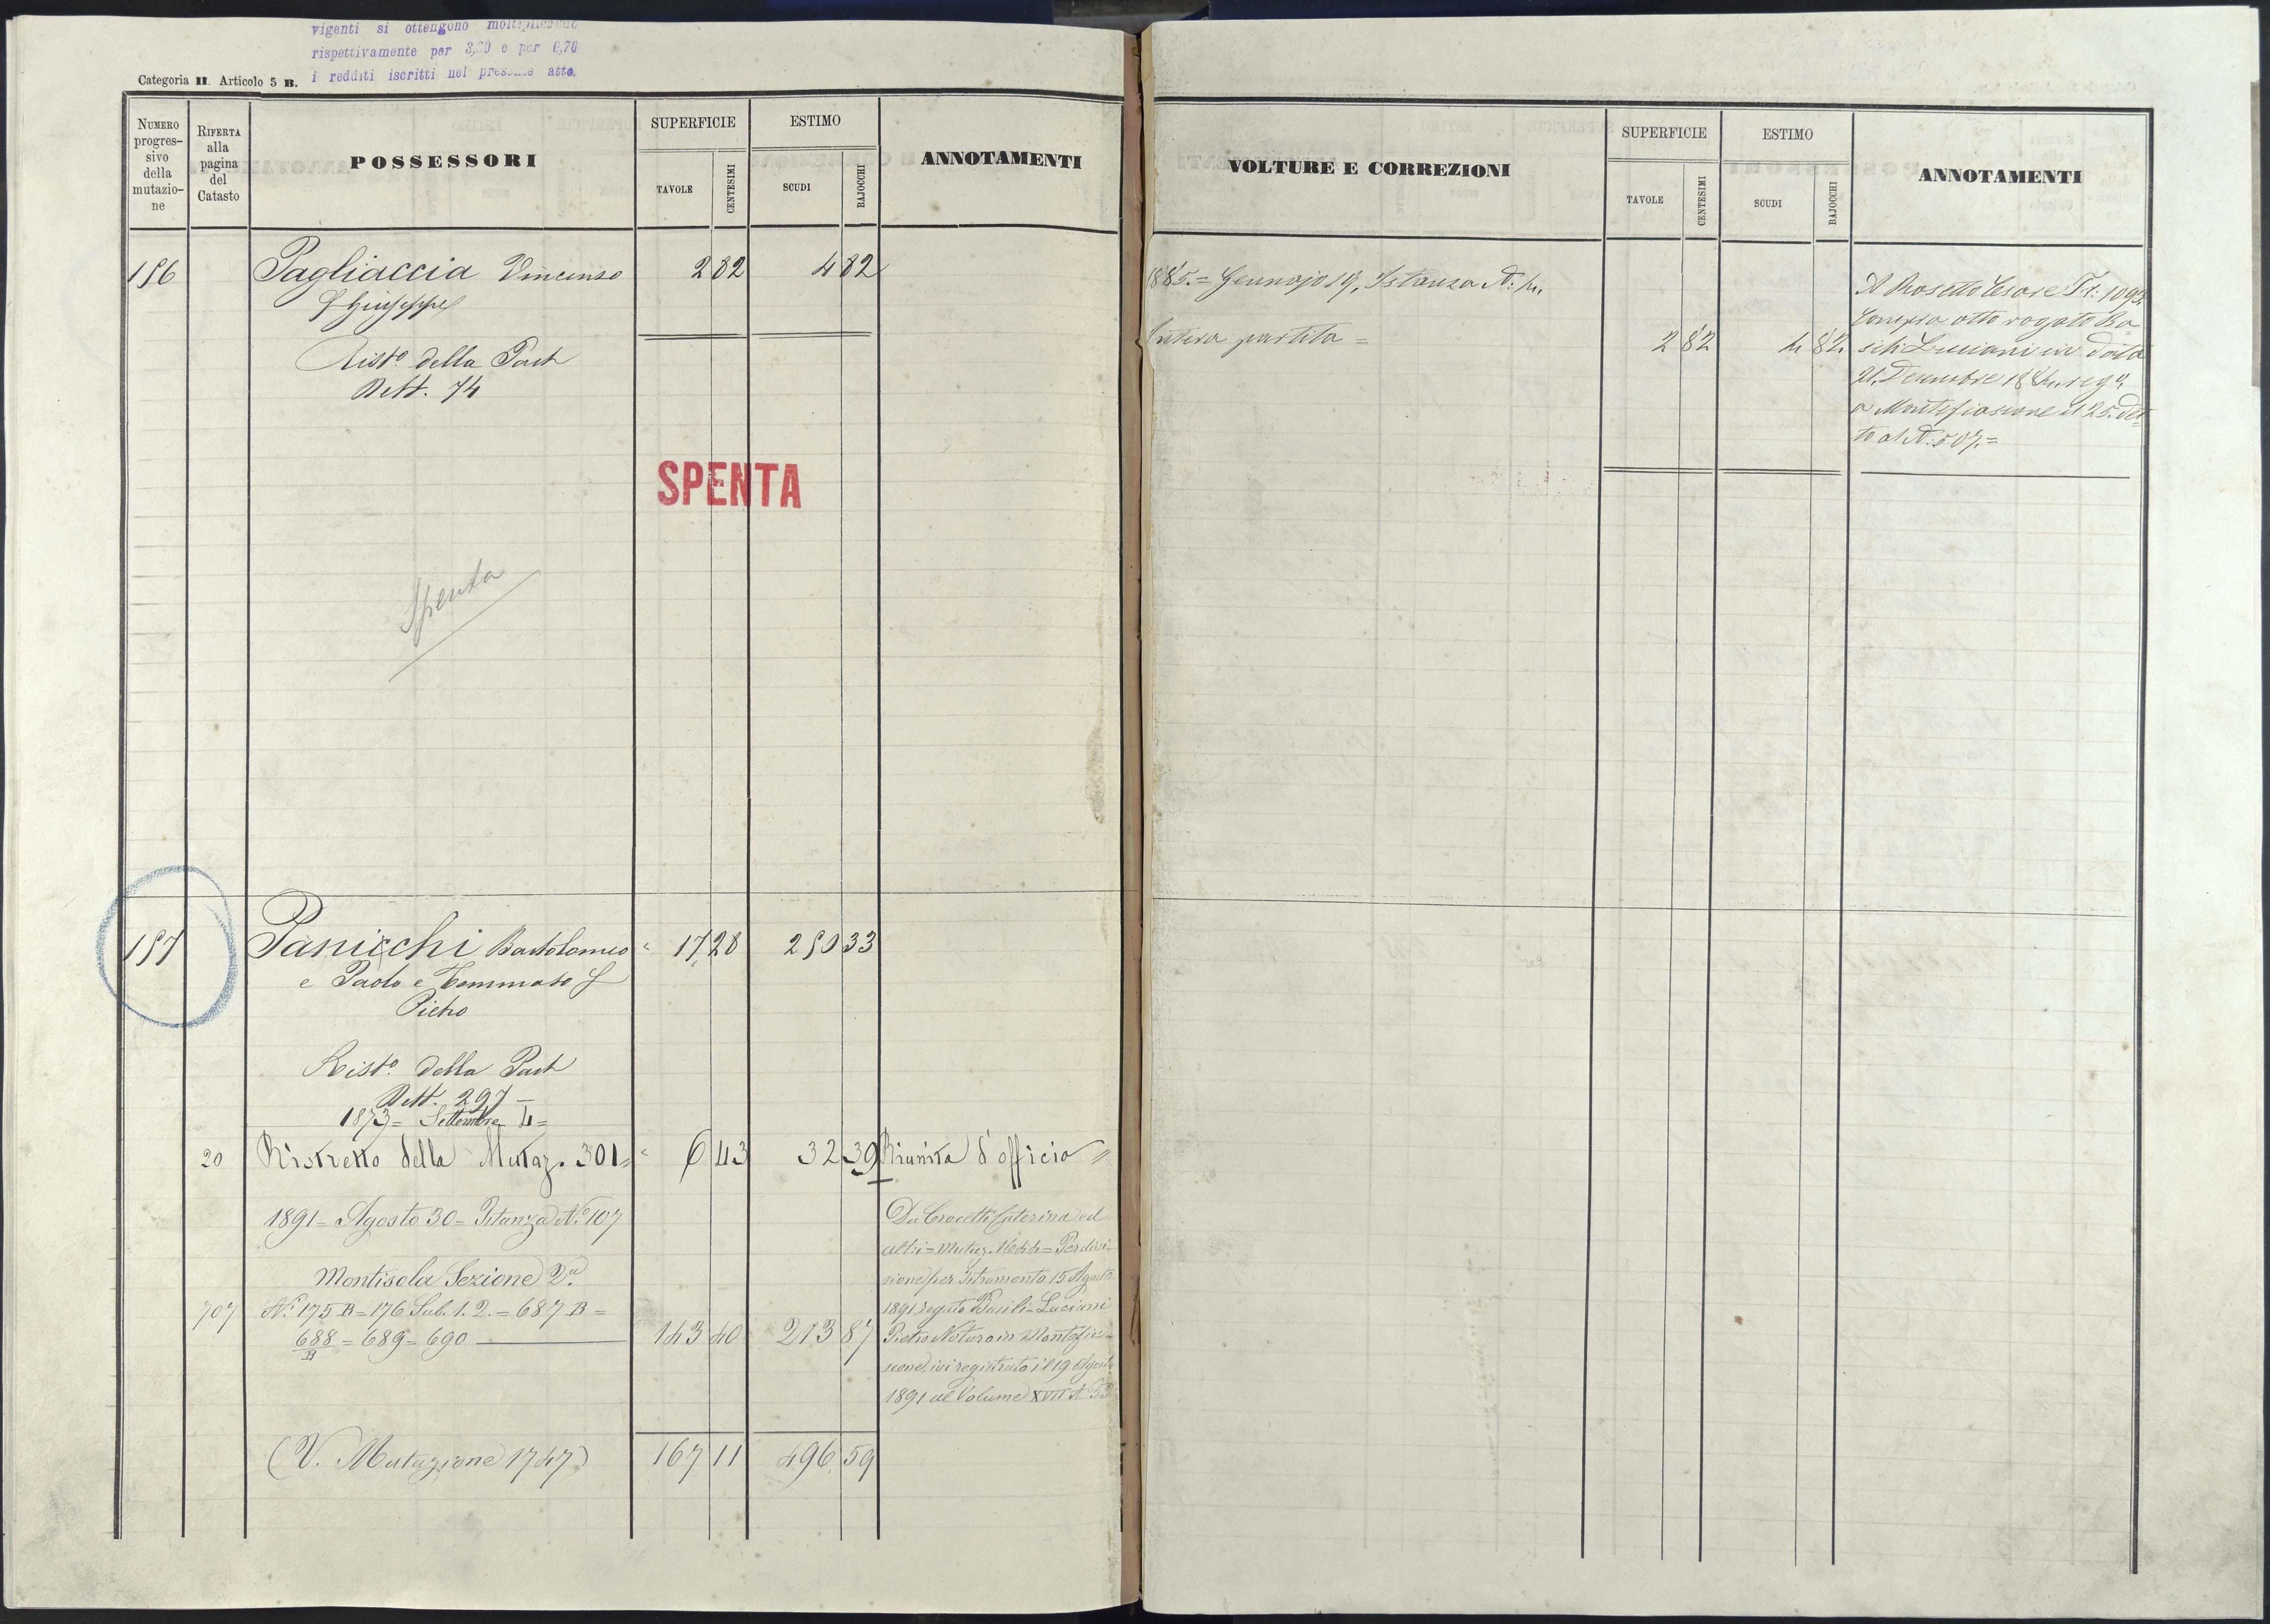 vigenti si ottengono moltiplicando
rispettivamente per 3,20 e per 6,70
i redditi iscritti nel presente atto.
Categoria II. Articolo 5 B.
NUMERO progres-sivo della mutazio-ne
RIFERTA alla pagina del Catasto
POSSESSORI
SUPERFICIE
TAVOLE
CENTESIMI
ESTIMO
SCUDI
BAJOCCHI
ANNOTAMENTI
156 Pagliaccia Vincenzo 2 82 4 82
q Giuseppe
Rist.o della Part
Rett. 74
SPENTA
Spenta
157 Panicchi Bartolomeo 17 28 250 33
e Paolo e Tommaso q
Pietro
Rist.o della Part
Rett. 297 —
1873 = Settembre 4 =
20 Ristretto della Mutaz. 301 = 6 43 32 39 Riunita d'officio "
1891 = Agosto 30 = Istanza N.o 107
Montisola Sezione 2.a
707 N.i 175 B = 176 Sub. 1. 2. = 687 B =
688/B = 689 = 690 — 143 40 213 87
Da Crocetti Caterina ed
altri = Mutaz. 1644 = Per divi-
sione per Istromento 15 Agosto
1891 rogato Basili = Luciani
Pietro Notaro in Montefia-
scone, ivi registrato il 19 Agosto
1891 al Volume XVII N.o 53
(V. Mutazione 1747) 167 11 496 59
VOLTURE E CORREZIONI
SUPERFICIE
TAVOLE
CENTESIMI
ESTIMO
SCUDI
BAJOCCHI
ANNOTAMENTI
1885. = Gennajo 19, Istanza N. 4.
Intiera partita = 2 82 4 82
A Rosetto Cesare Tt: 1093.
Compra atto rogato Ba
sili Luciani in data
21. Decembre 1884. reg.o
a Montefiascone il 25. det
to al N: 507. =